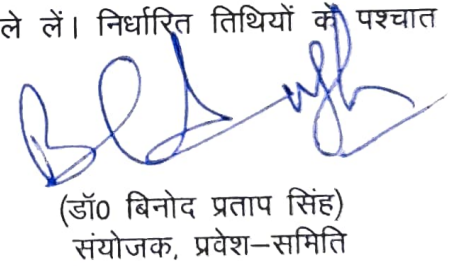 ले लें। निर्धारित तिथियों के पश्चात
(डॉ0 बिनोद प्रताप सिंह)
संयोजक, प्रवेश–समिति